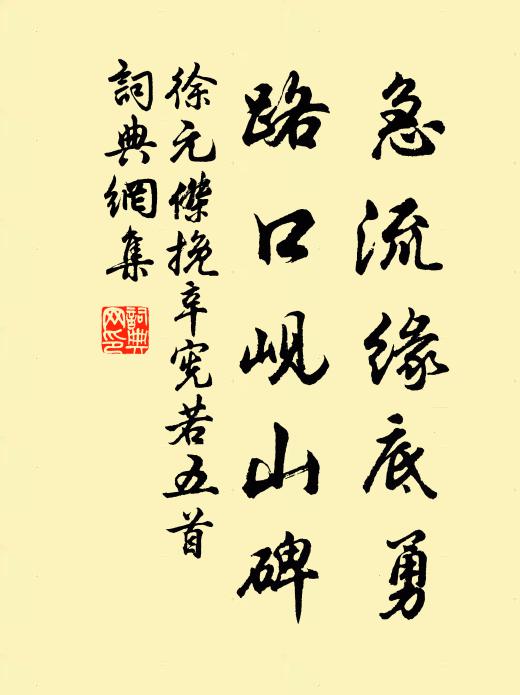 急流缘底勇
路口岘山碑
徐元傑挽辛宪若五首
詞典網集
詞典网印